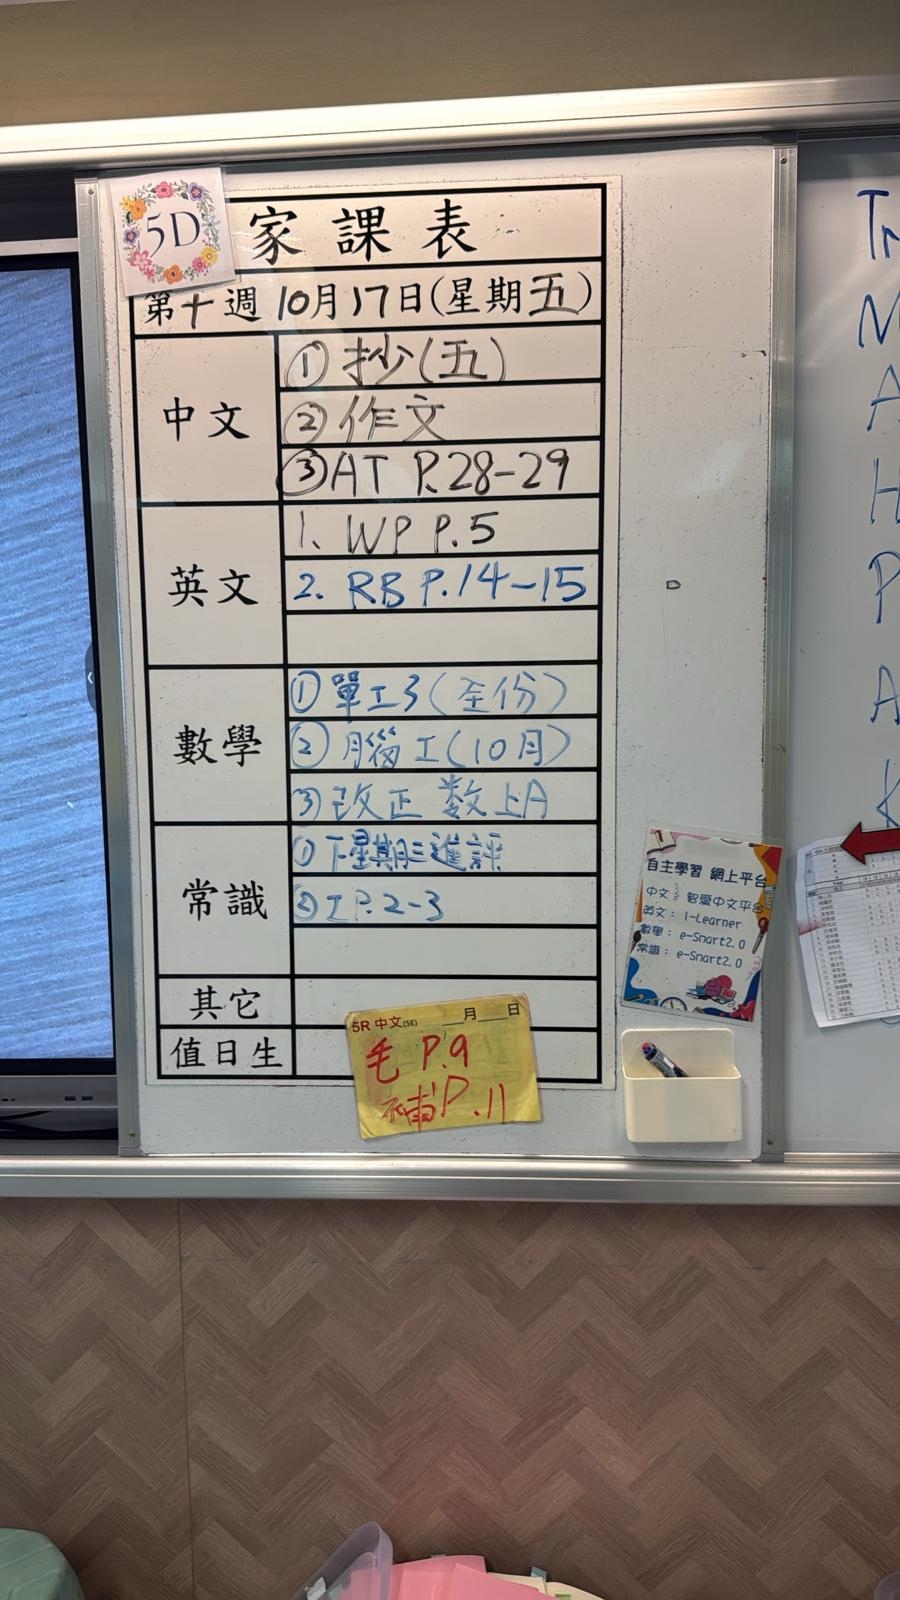 5D
家課表
第十週 10月17日(星期五)
中文
① 抄(五)
② 作文
③ AT P.28-29
英文
1. WP P.5
2. RB P.14-15
數學
① 單工3(全份)
② 腦工(10月)
③ 改正 数上A
常識
① 下星期三進評
② I P.2-3
其它
值日生
5R 中文(5E) __月__日
毛 P.9
補 P.11
自主學習 網上平台
中文: 智愛中文平台
英文: i-Learner
數學: e-Smart2.0
常識: e-Smart2.0
Tr
M
A
H
P
A
K